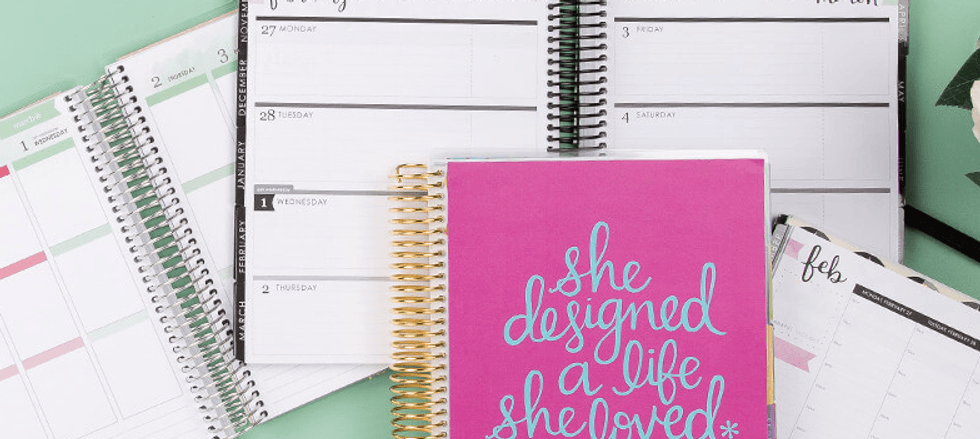 27 MONDAY
28 TUESDAY
1 WEDNESDAY
2 THURSDAY
3 FRIDAY
4 SATURDAY
NOVEM
DECEMBER
JANUARY
FEBRUARY
MARCH
APRIL
MAY
1 WEDNESDAY
2 THURSDAY
3
she
designed
a life
she loved*
feb
MONDAY FEBRUARY 27
TUESDAY FEBRUARY 28